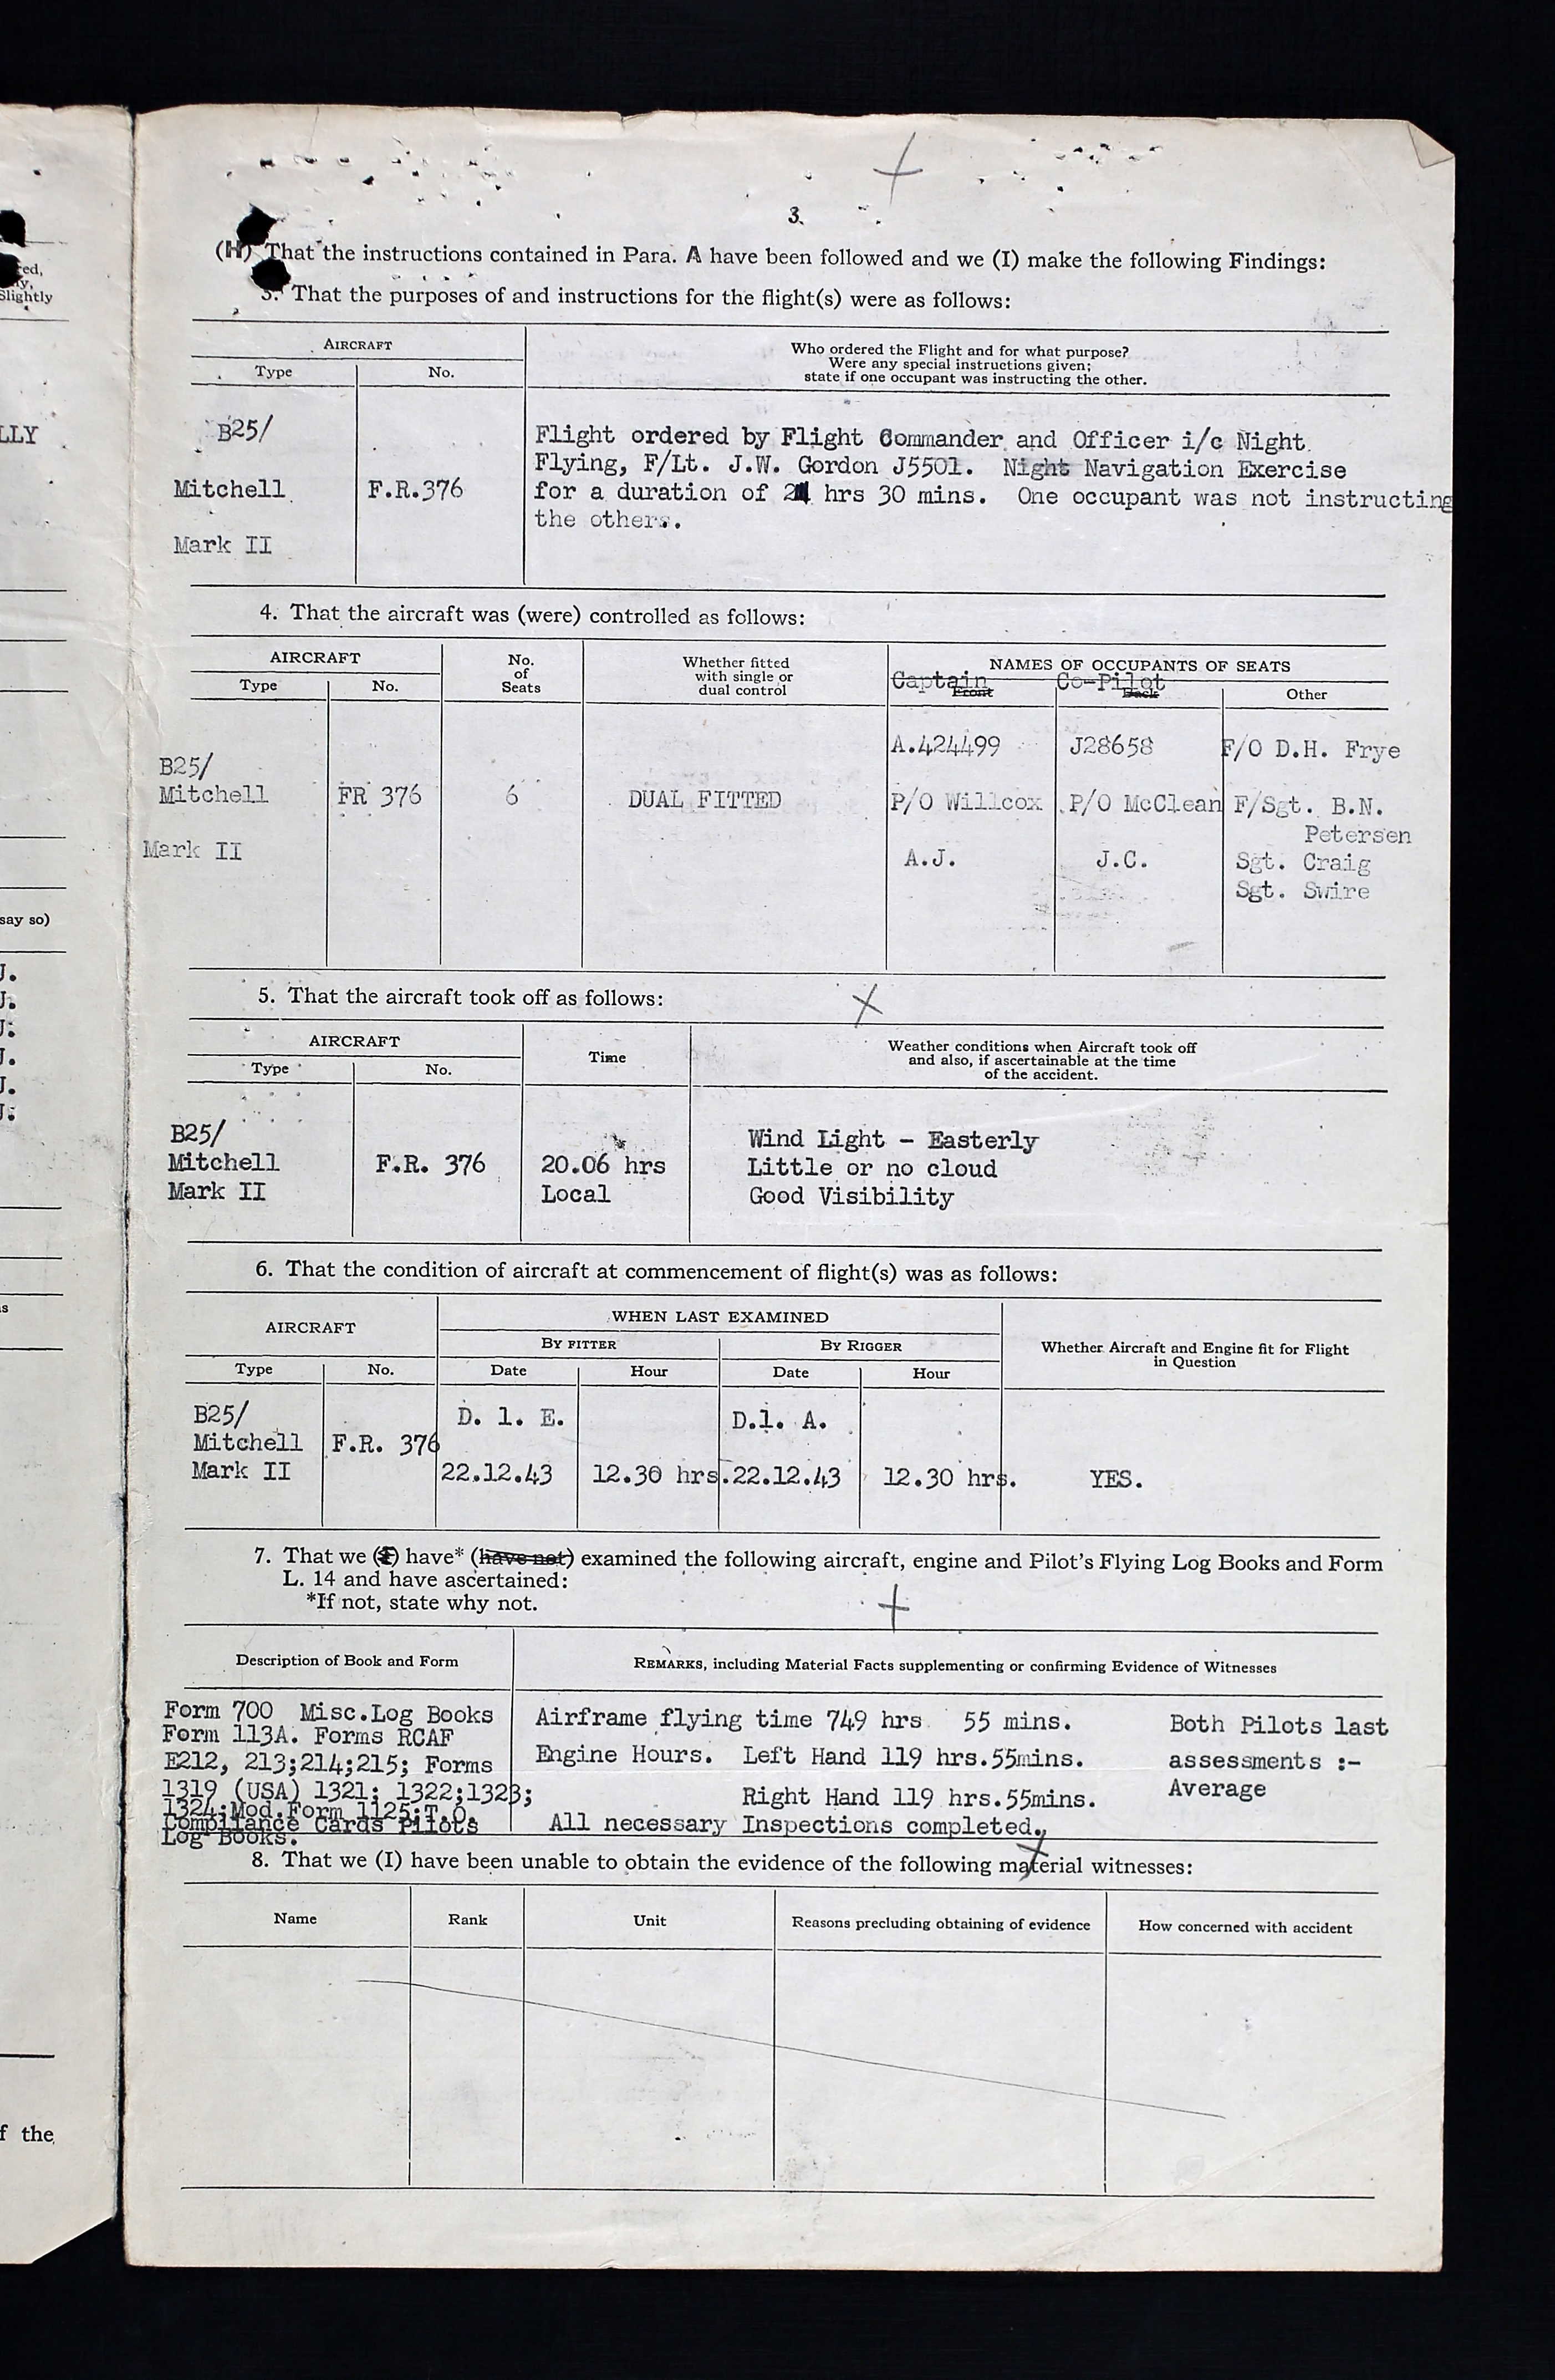 3.
(H) That the instructions contained in Para. A have been followed and we (I) make the following Findings:
3. That the purposes of and instructions for the flight(s) were as follows:
AIRCRAFT
Type
No.
Who ordered the Flight and for what purpose?
Were any special instructions given;
state if one occupant was instructing the other.
B25/
Mitchell
Mark II
F.R.376
Flight ordered by Flight Commander and Officer i/c Night
Flying, F/Lt. J.W. Gordon J5501. Night Navigation Exercise
for a duration of 2 hrs 30 mins. One occupant was not instructing
the others.
4. That the aircraft was (were) controlled as follows:
AIRCRAFT
Type
No.
No.
of
Seats
Whether fitted
with single or
dual control
NAMES OF OCCUPANTS OF SEATS
Captain
Front
Co-Pilot
Back
Other
B25/
Mitchell
Mark II
FR 376
6
DUAL FITTED
A.424499
P/O Willcox
A.J.
J28658
P/O McClean
J.C.
F/O D.H. Frye
F/Sgt. B.N.
Petersen
Sgt. Craig
Sgt. Swire
5. That the aircraft took off as follows:
AIRCRAFT
Type
No.
Time
Weather conditions when Aircraft took off
and also, if ascertainable at the time
of the accident.
B25/
Mitchell
Mark II
F.R. 376
20.06 hrs
Local
Wind Light - Easterly
Little or no cloud
Good Visibility
6. That the condition of aircraft at commencement of flight(s) was as follows:
AIRCRAFT
Type
No.
WHEN LAST EXAMINED
BY FITTER
BY RIGGER
Date
Hour
Date
Hour
Whether Aircraft and Engine fit for Flight
in Question
B25/
Mitchell
Mark II
F.R. 376
D. 1. E.
22.12.43
12.30 hrs.
D.1. A.
22.12.43
12.30 hrs.
YES.
7. That we (I) have* (have not) examined the following aircraft, engine and Pilot's Flying Log Books and Form
L. 14 and have ascertained:
*If not, state why not.
Description of Book and Form
REMARKS, including Material Facts supplementing or confirming Evidence of Witnesses
Form 700 Misc.Log Books
Form 113A. Forms RCAF
E212, 213;214;215; Forms
1319 (USA) 1321; 1322;1323;
1324;Mod.Form 1125;T.O.
Compliance Cards Pilots
Log Books.
Airframe flying time 749 hrs 55 mins.
Engine Hours. Left Hand 119 hrs.55mins.
Right Hand 119 hrs.55mins.
All necessary Inspections completed.
Both Pilots last
assessments :-
Average
8. That we (I) have been unable to obtain the evidence of the following material witnesses:
Name
Rank
Unit
Reasons precluding obtaining of evidence
How concerned with accident
slightly
LLY
say so)
J.
J.
J.
J.
J.
J.
f the